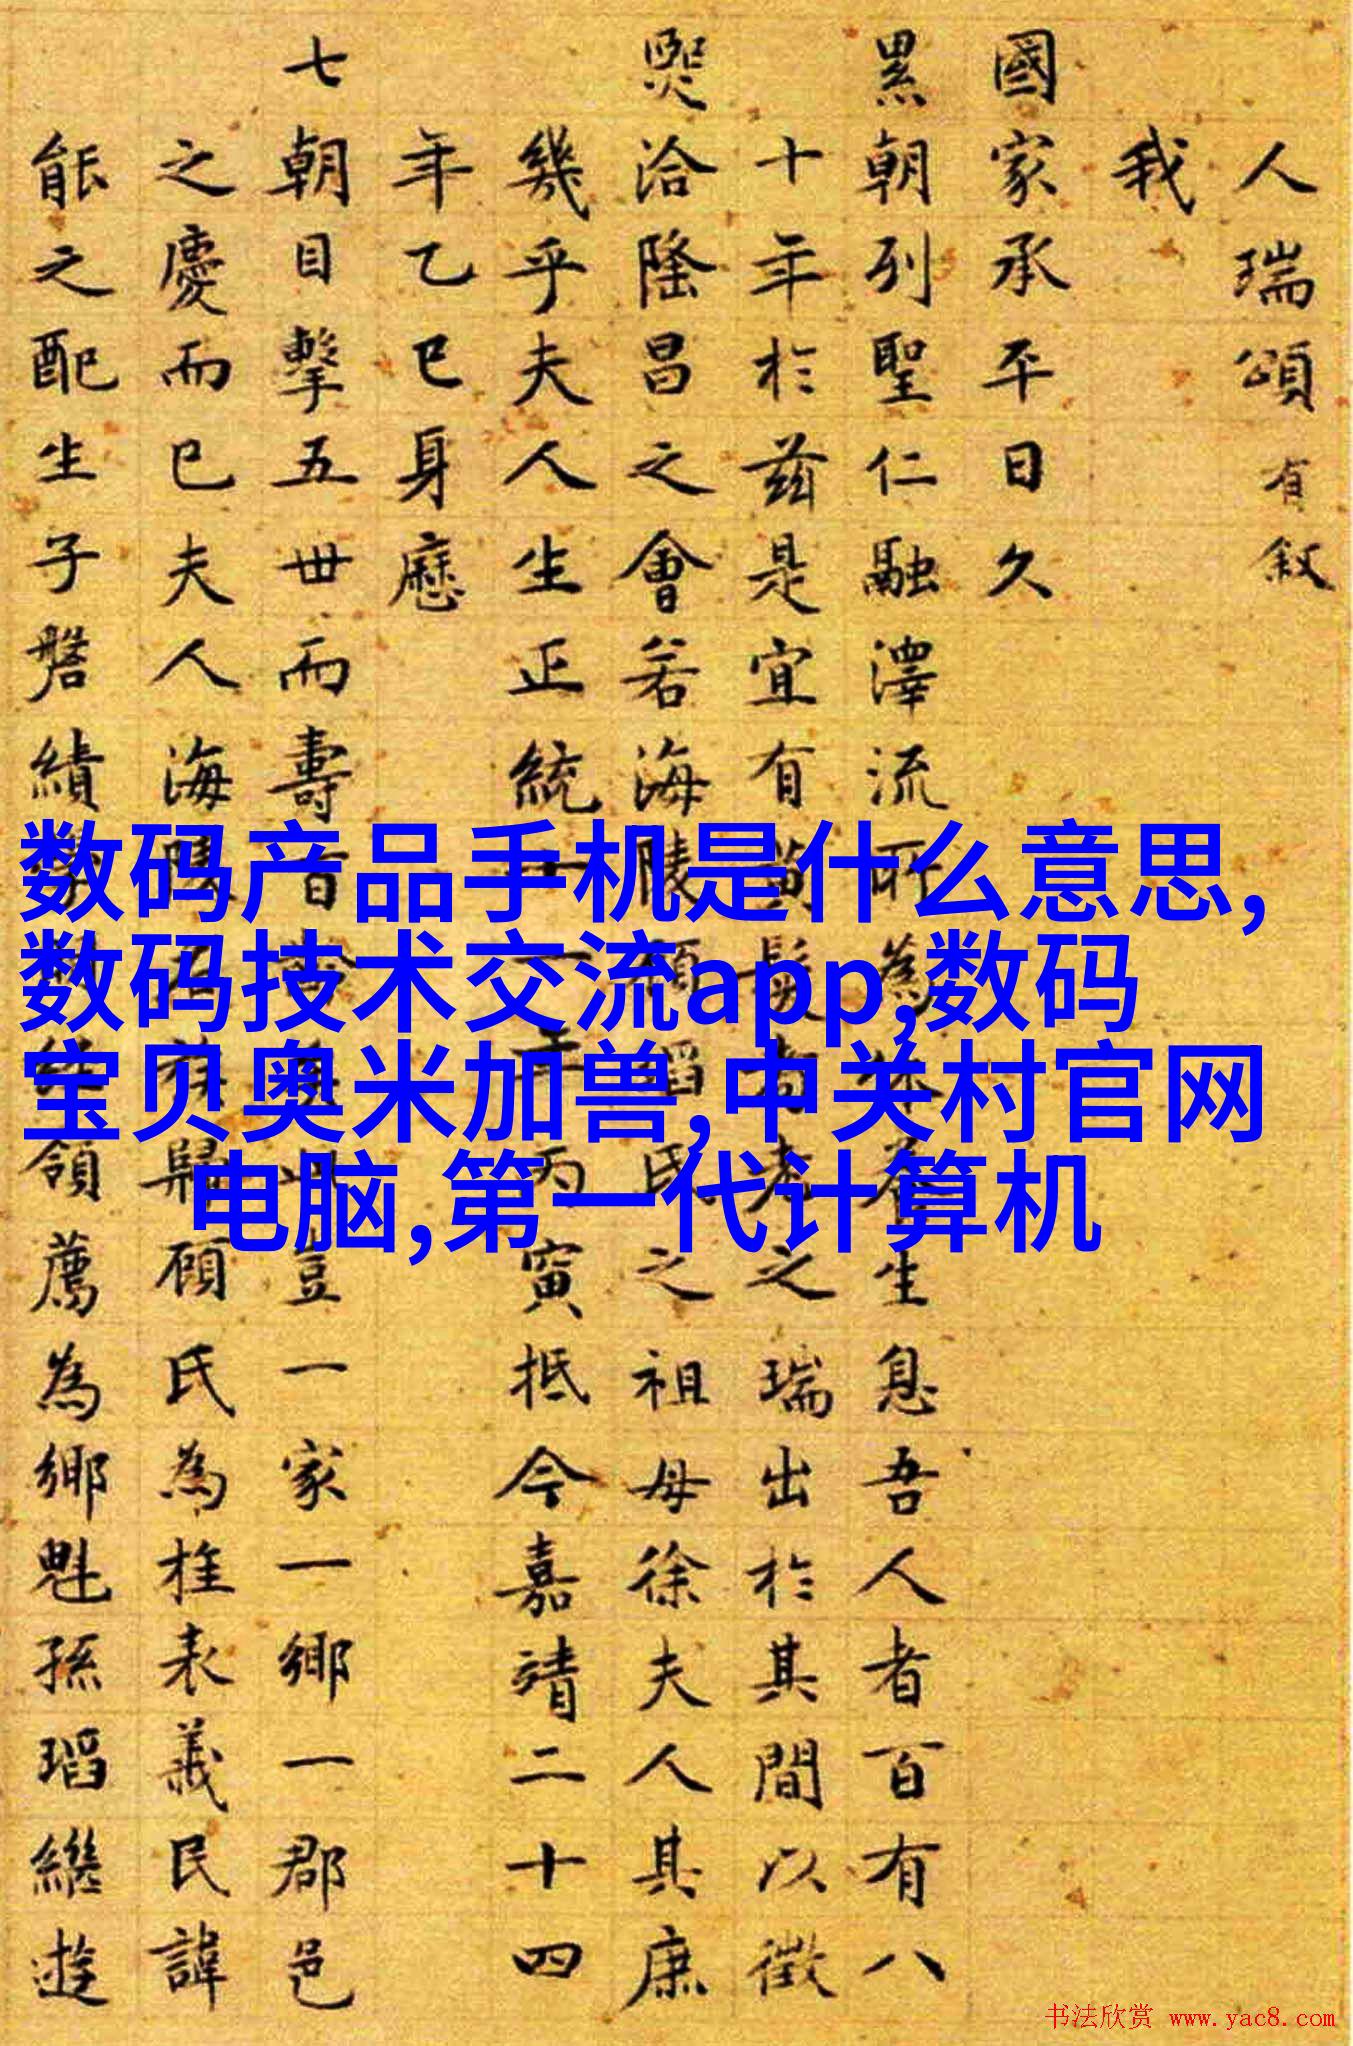 人瑞頌 有叙
我
國家承平日久
累朝列聖仁融澤流所為休養生息吾人者百有八
十年於茲是宜有黄髮之瑞出於其間以徵
熙洽隆昌之會若海陵顧瑫氏之祖母徐夫人其庶
幾乎夫人生正統十一年丙寅抵今嘉靖二十四
年乙巳身歷
七朝目擊五世而壽百齡豈一家一鄉一郡邑
之慶而已夫人海陵右族歸顧氏為旌表義民諱
能之配生子磐績學領薦為鄉魁孫瑫繼遊
数码产品手机是什么意思,
数码技术交流app,数码
宝贝奥米加兽,中关村官网
电脑,第一代计算机
书法欣赏 www.yac8.com